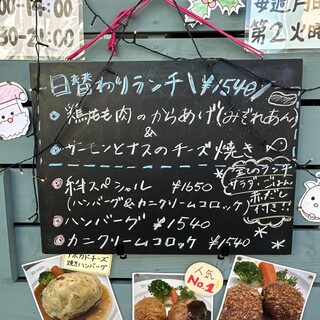 :00
30-21:00
毎週月曜
第2火
日替わりランチ \¥1540/
・鶏もも肉のからあげ(みぞれあん)
&
・サーモンとナスのチーズ焼き
スペシャル ¥1650
(ハンバーグ&カニクリームコロッケ)
・ハンバーグ ¥1540
・カニクリームコロッケ ¥1540
全てのランチ
サラダ・ごはん
赤だし
付き!!
アボカドチーズ
焼きハンバーグ
人気
No.1